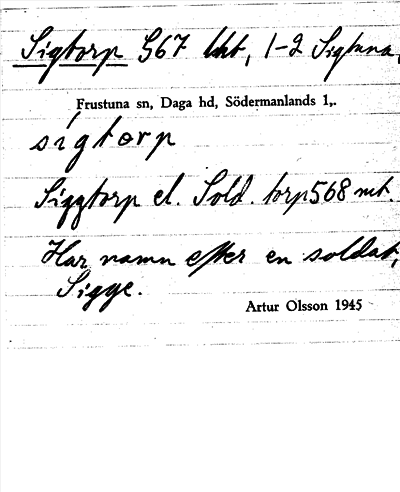 Sigtorp 567 lht, 1-2 Sigtuna,
Frustuna sn, Daga hd, Södermanlands 1,.
sígtorp
Siggtorp el. Sold. torp 568 mt.
Har namn efter en soldat,
Sigge.
Artur Olsson 1945